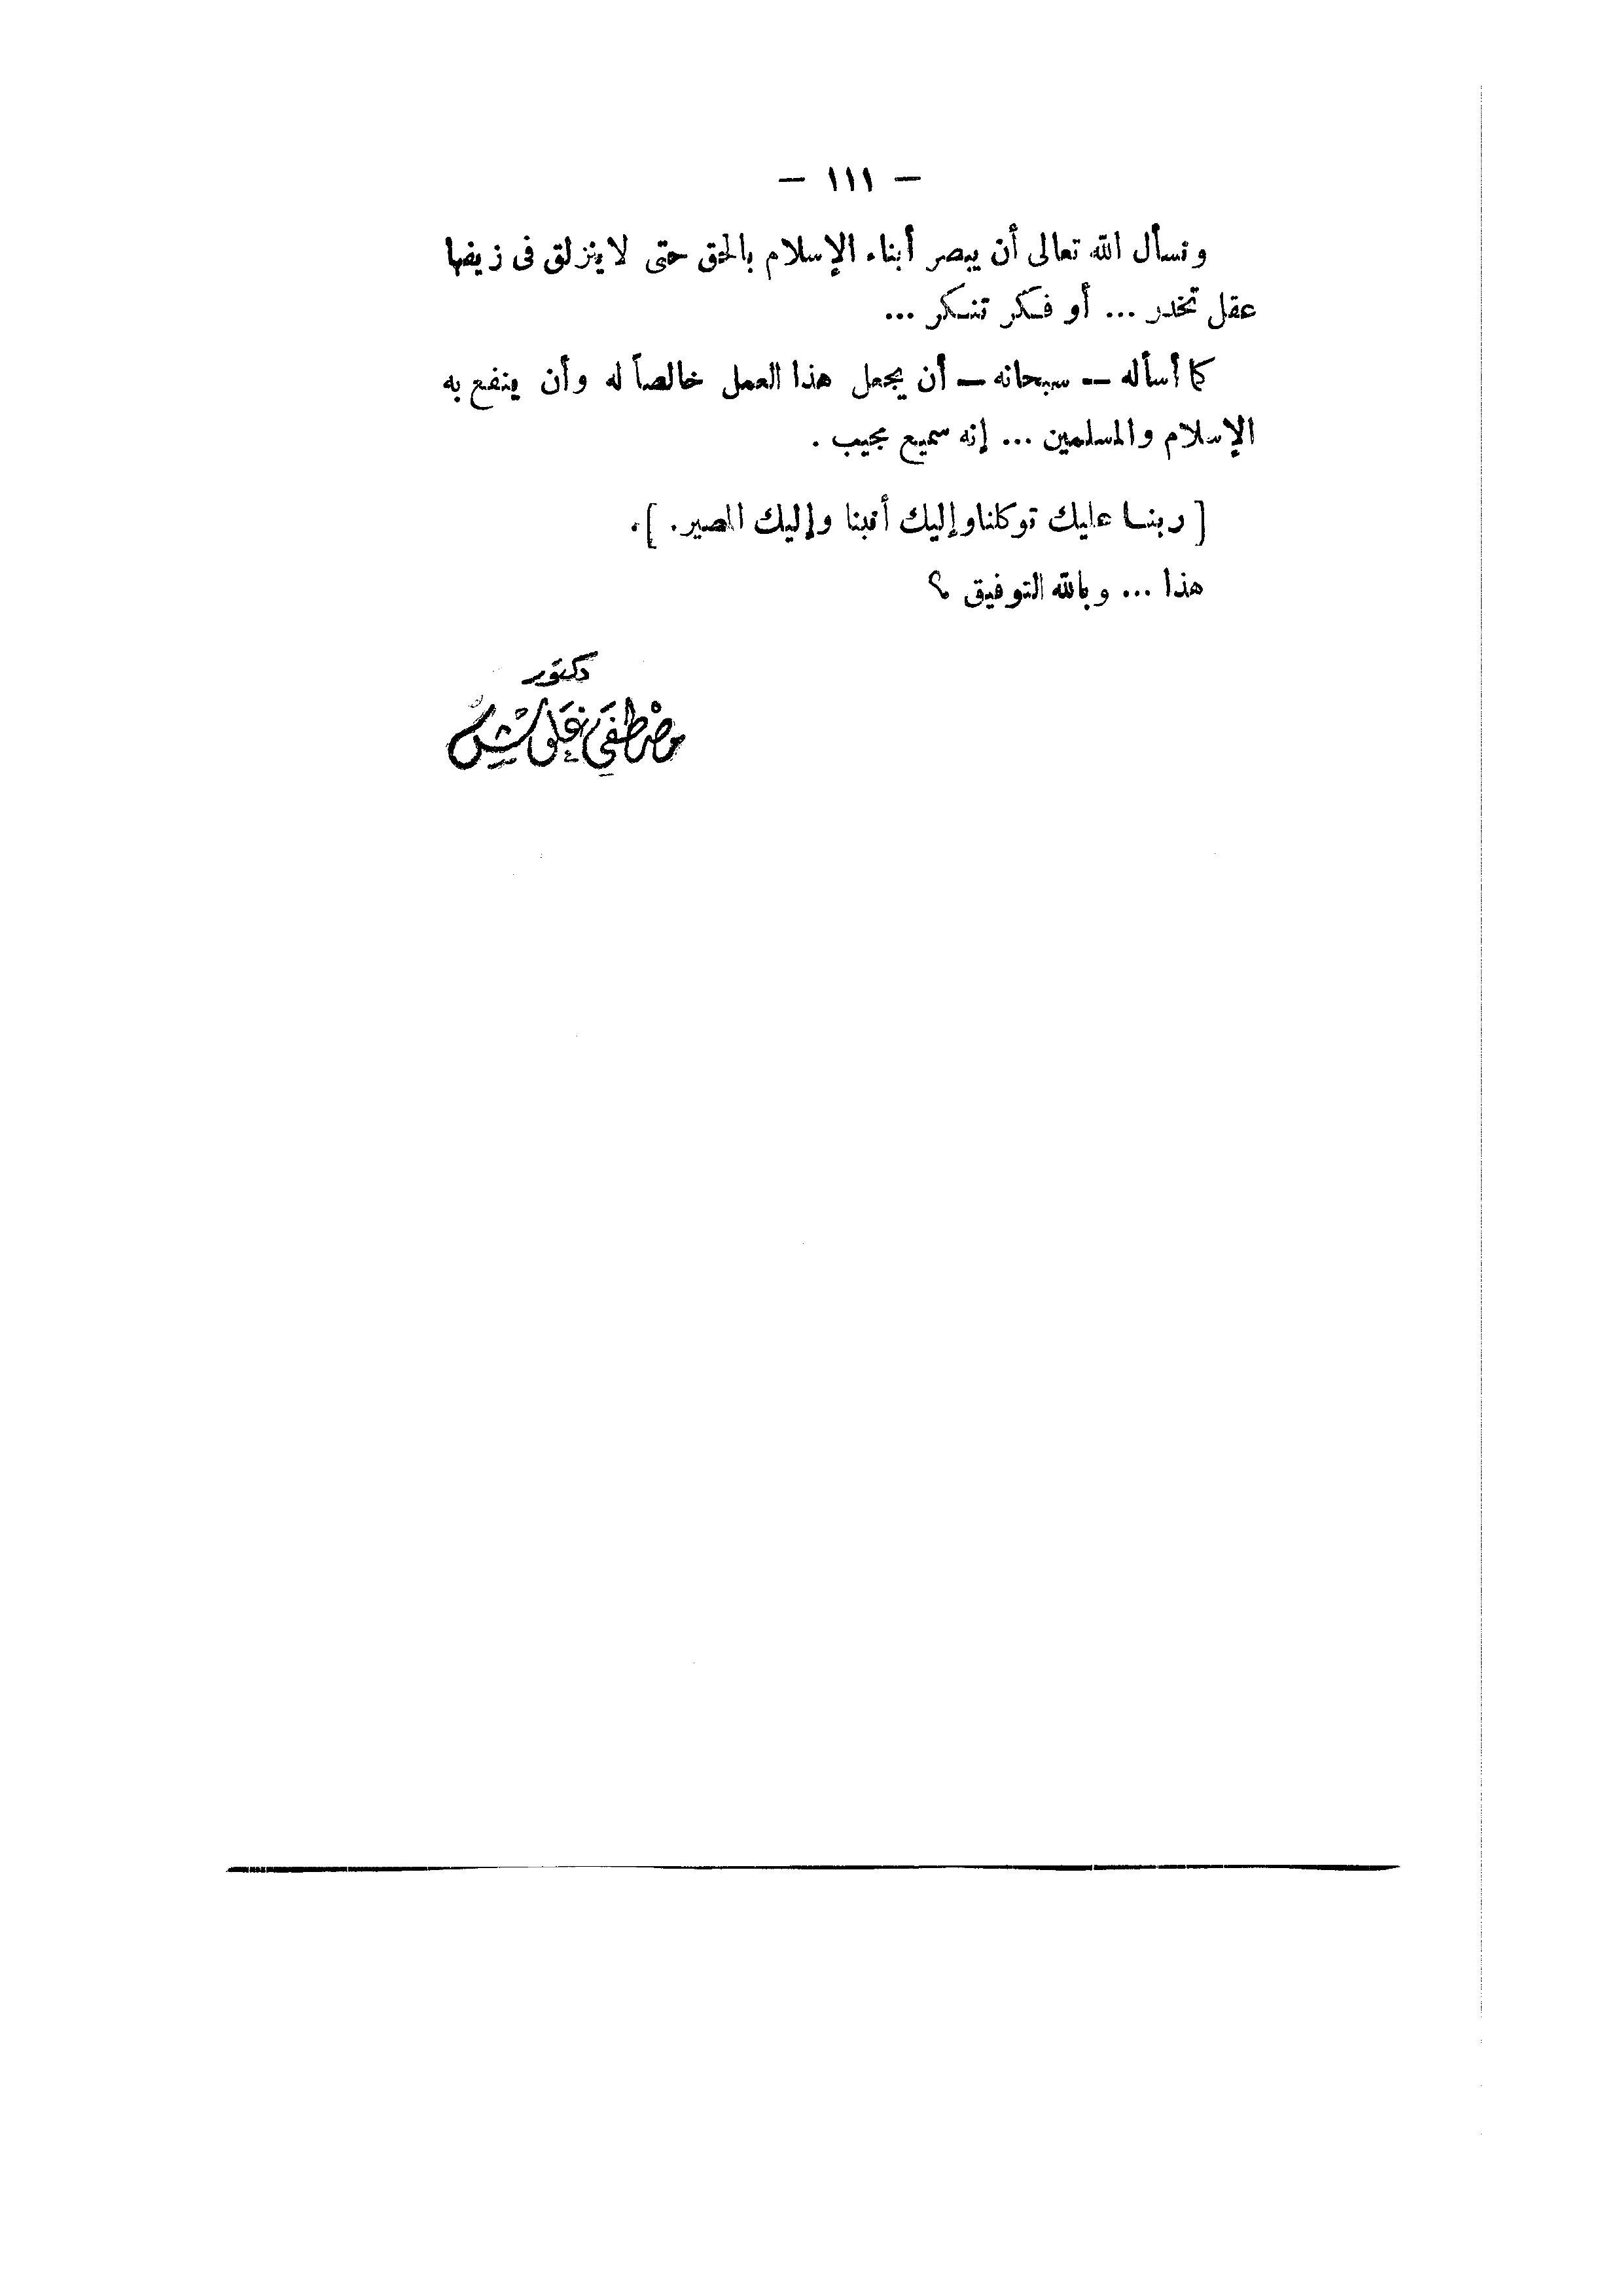 — ١١١ —
ونسأل الله تعالى أن يبصر أبناء الإسلام بالحق حتى لا ينزلق فى زيفها
عقل تخدر ... أو فكر تنكر ...
كما أسأله — سبحانه — أن يجعل هذا العمل خالصاً له وأن ينفع به
الإسلام والمسلمين ... إنه سميع مجيب .
[ ربنا عليك توكلنا وإليك أنبنا وإليك المصير. ].
هذا ... وبالله التوفيق ؟
دكتور
مصطفى غلوش